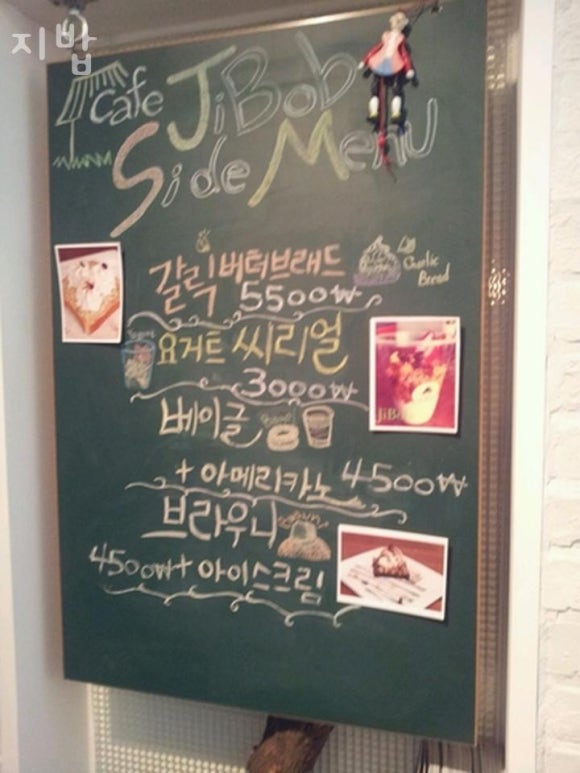 지밥
Cafe JiBob
Side Menu
갈릭버터브래드
Garlic
Bread
5500₩
Yogurt
요거트 씨리얼
3000₩
JiBo
베이글
+ 아메리카노 4500₩
브라우니
4500₩+아이스크림